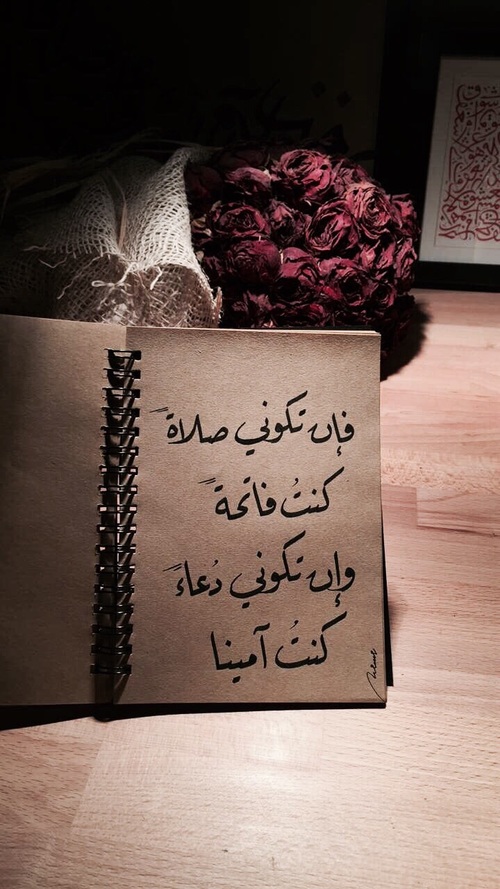 فإن تكوني صلاةً
كنتُ فاتحةً
وإن تكوني دُعاءً
كنتُ آمينا